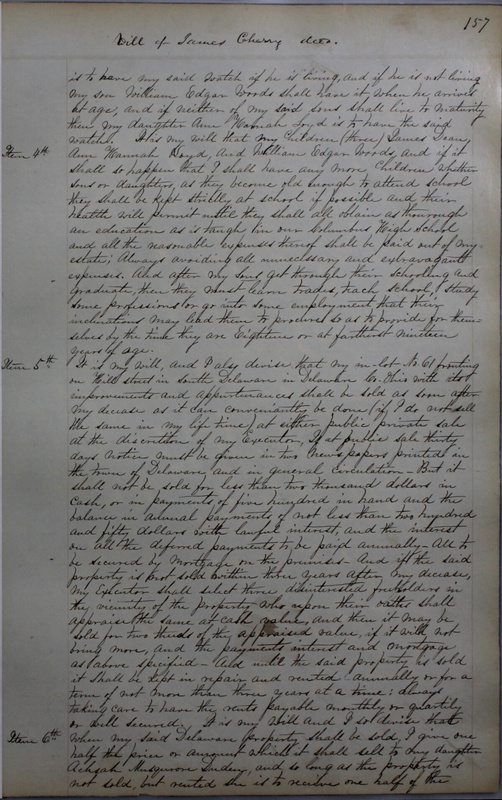 157
Will of James Cherry decs.
is to have my said watch if he is living, and if he is not living
my son William Edgar Woods shall have it when he arrives
at age, and if neither of my said sons shall live to maturity
then my daughter Ann Hannah Loyd is to have the said
watch.
Item 4th It is my will that my Children (three) James Isaac,
Ann Hannah Loyd, And William Edgar Woods, and if it
shall so happen that I shall have any more Children whether
sons or daughters, as they become old enough to attend school
they shall be kept strictly at school if possible and their
health will permit until they shall all obtain as thourough
an education as is taught in our Columbus High School
and all the reasonable expenses thereof shall be paid out of my
estate; Always avoiding all unnecessary and extravagant
expenses. And after my sons get through their schooling and
graduate, then they must learn trades, teach school, study
some profession or go into some employment that their
inclinations may lead them to procure so as to provide for them-
selves by the time they are Eighteen or at fartherst Nineteen
years of age.
Item 5th It is my will, and I also devise that my in-lot No 61 fronting
on Hill street in South Delaware in Delaware Co. Ohio with its
improvements and appurtenances shall be sold as soon after
my decease as it can conveniently be done (if I do not sell
the same in my life time) at either public private sale
at the discretion of my Executor, If at public sale thirty
days notice must be given in two Newspapers printed in
the town of Delaware and in general circulation - But it
shall not be sold for less than two thousand dollars in
Cash, or in payments of five hundred in hand and the
balance in annual payments of not less than two hundred
and fifty dollars with lawful interest, and the interest
on all the deferred payments to be paid annually - All to
be secured by Mortgage on the premises - And if the said
property is not sold within three years after my decease,
my Executor shall select three disinterested freeholders in
the vicinity of the property who upon their oaths shall
appraise the same at cash value, and then it may be
sold for two thirds of the appraised value, if it will not
bring more, and the payments interest and mortgage
as above specified - And until the said property is sold
it shall be kept in repair and rented annually or for a
term of not more than three years at a time: always
taking care to have the rents payable monthly or quarterly
or well secured.
Item 6th It is my Will and I so devise that
when my said Delaware property shall be sold, I give one
half the price or amount which it shall sell to my daughter
Achsah Musgrove and so long as the property is
not sold, but rented she is to receive one half of the